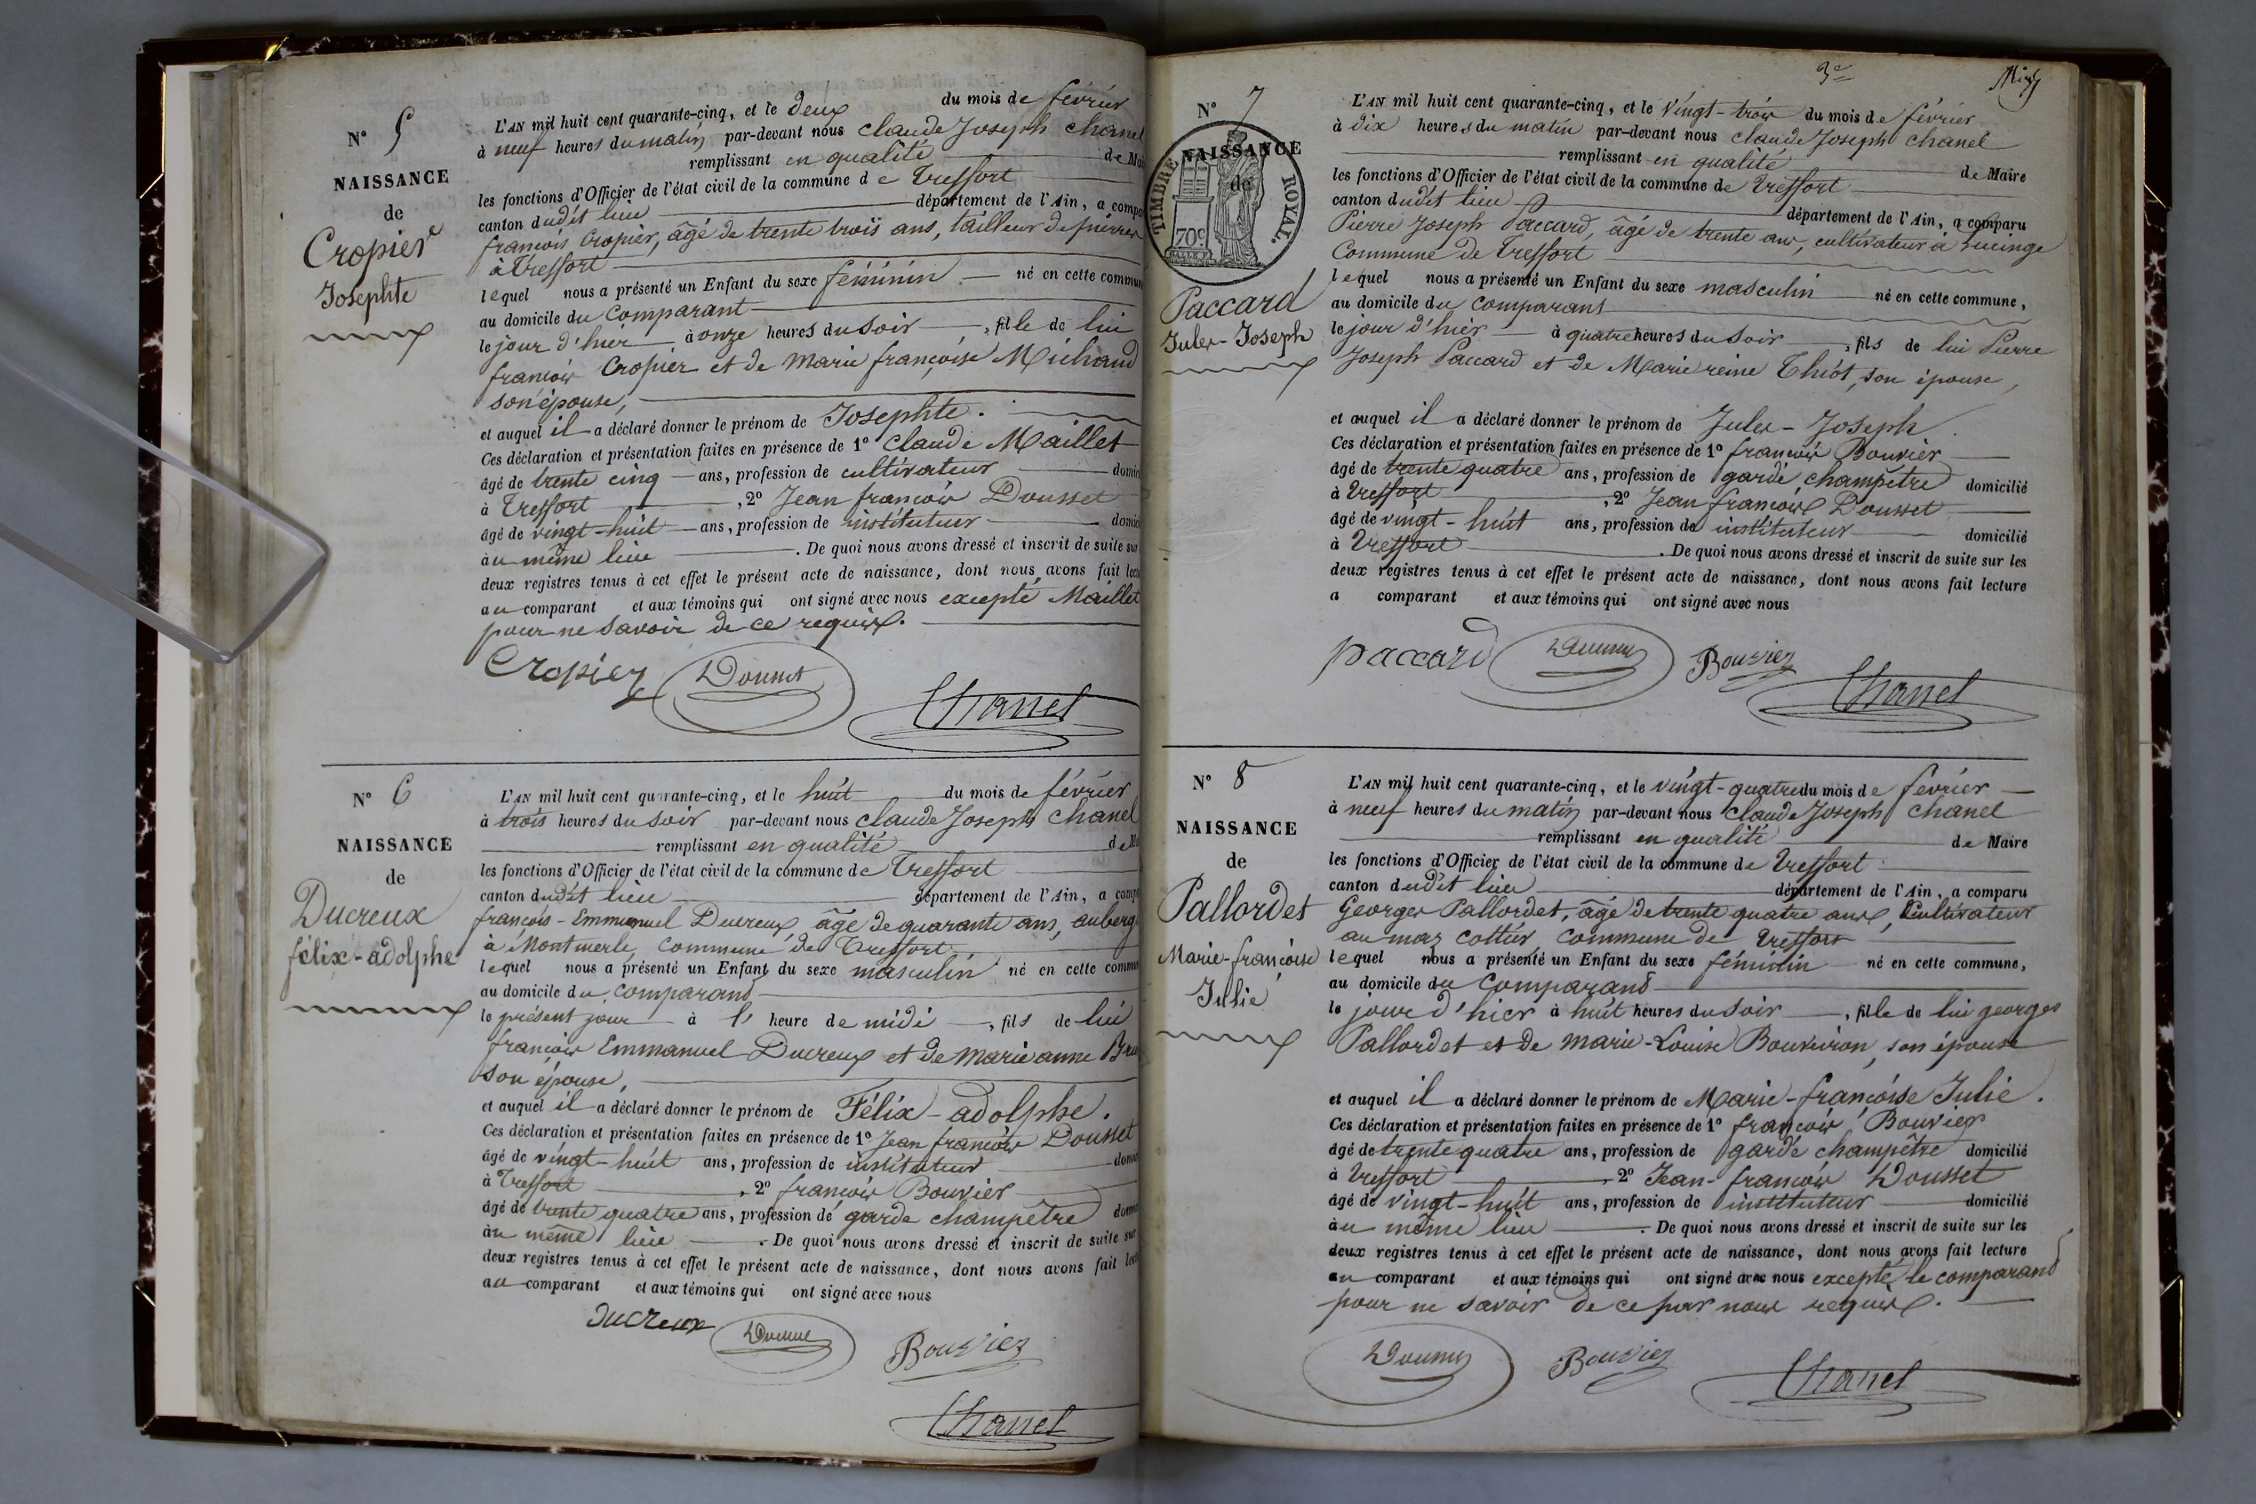 N° 5
NAISSANCE
de
Cropier
Josephte
L'AN mil huit cent quarante-cinq, et le deux du mois de février
à neuf heures du matin par-devant nous Claude Joseph Chanel
remplissant en qualité de Mai
les fonctions d'Officier de l'état civil de la commune de Treffort
canton dudit lieu département de l'Ain, a compa
françois Cropier, âgé de trente trois ans, tailleur de pierres
à Treffort
lequel nous a présenté un Enfant du sexe féminin né en cette commun
au domicile du comparant
le jour d'hier à onze heures du soir, fille de lui
françois Cropier et de Marie françoise Michaud
son épouse,
et auquel il a déclaré donner le prénom de Josephte.
Ces déclaration et présentation faites en présence de 1° Claude Maillet
âgé de trente cinq ans, profession de cultivateur domici
à Treffort, 2° Jean françois Dousset
âgé de vingt-huit ans, profession de instituteur domici
au même lieu. De quoi nous avons dressé et inscrit de suite sur
deux registres tenus à cet effet le présent acte de naissance, dont nous avons fait lect
au comparant et aux témoins qui ont signé avec nous excepté Maillet
pour ne savoir de ce requis.
Cropier Dousset
Chanel
N° 6
NAISSANCE
de
Ducreux
félix-adolphe
L'AN mil huit cent quarante-cinq, et le huit du mois de février
à trois heures du soir par-devant nous Claude Joseph Chanel
remplissant en qualité de Ma
les fonctions d'Officier de l'état civil de la commune de Treffort
canton dudit lieu département de l'Ain, a comp
françois-Emmanuel Ducreux âgé de quarante ans, auberg
à Montmerle, commune de Treffort
lequel nous a présenté un Enfant du sexe masculin né en cette commun
au domicile du comparand
le présent jour à l'heure de midi, fils de lui
françois Emmanuel Ducreux et de Marie anne Bru
son épouse,
et auquel il a déclaré donner le prénom de Félix-adolphe.
Ces déclaration et présentation faites en présence de 1° Jean françois Dousset
âgé de vingt-huit ans, profession de instituteur domi
à Treffort, 2° françois Bouvier
âgé de trente quatre ans, profession de garde champêtre domi
au même lieu. De quoi nous avons dressé et inscrit de suite sur
deux registres tenus à cet effet le présent acte de naissance, dont nous avons fait lect
au comparant et aux témoins qui ont signé avec nous
Ducreux Dousset Bouvier
Chanel
3e
N° 7
NAISSANCE
de
TIMBRE ROYAL.
70c
Paccard
Jules-Joseph
L'AN mil huit cent quarante-cinq, et le vingt-trois du mois de février
à dix heures du matin par-devant nous Claude Joseph Chanel
remplissant en qualité de Maire
les fonctions d'Officier de l'état civil de la commune de Treffort
canton dudit lieu département de l'Ain, a comparu
Pierre Joseph Paccard, âgé de trente ans, cultivateur à Lucinge
Commune de Treffort
lequel nous a présenté un Enfant du sexe masculin né en cette commune,
au domicile du comparant
le jour d'hier à quatre heures du soir, fils de lui Pierre
Joseph Paccard et de Marie reine Thiót, son épouse,
et auquel il a déclaré donner le prénom de Jules-Joseph.
Ces déclaration et présentation faites en présence de 1° françois Bouvier
âgé de trente quatre ans, profession de garde champêtre domicilié
à Treffort, 2° Jean françois Dousset
âgé de vingt-huit ans, profession de instituteur domicilié
à Treffort. De quoi nous avons dressé et inscrit de suite sur les
deux registres tenus à cet effet le présent acte de naissance, dont nous avons fait lecture
a comparant et aux témoins qui ont signé avec nous
paccard Dousset Bouvier
Chanel
N° 8
NAISSANCE
de
Pallordet
Marie-françoise
Julie
L'AN mil huit cent quarante-cinq, et le vingt-quatre du mois de février
à neuf heures du matin par-devant nous Claude Joseph Chanel
remplissant en qualité de Maire
les fonctions d'Officier de l'état civil de la commune de Treffort
canton dudit lieu département de l'Ain, a comparu
Georges Pallordet, âgé de trente quatre ans, Cultivateur
au maz cottier, commune de Treffort
lequel nous a présenté un Enfant du sexe féminin né en cette commune,
au domicile du comparand
le jour d'hier à huit heures du soir, fille de lui georges
Pallordet et de marie-Louise Bouveiron, son épouse
et auquel il a déclaré donner le prénom de Marie-françoise Julie.
Ces déclaration et présentation faites en présence de 1° françois Bouvier
âgé de trente quatre ans, profession de garde champêtre domicilié
à Treffort, 2° Jean-françois Dousset
âgé de vingt-huit ans, profession de instituteur domicilié
au même lieu. De quoi nous avons dressé et inscrit de suite sur les
deux registres tenus à cet effet le présent acte de naissance, dont nous avons fait lecture
au comparant et aux témoins qui ont signé avec nous excepté le comparand
pour ne savoir de ce par nous requis.
Dousset Bouvier Chanel